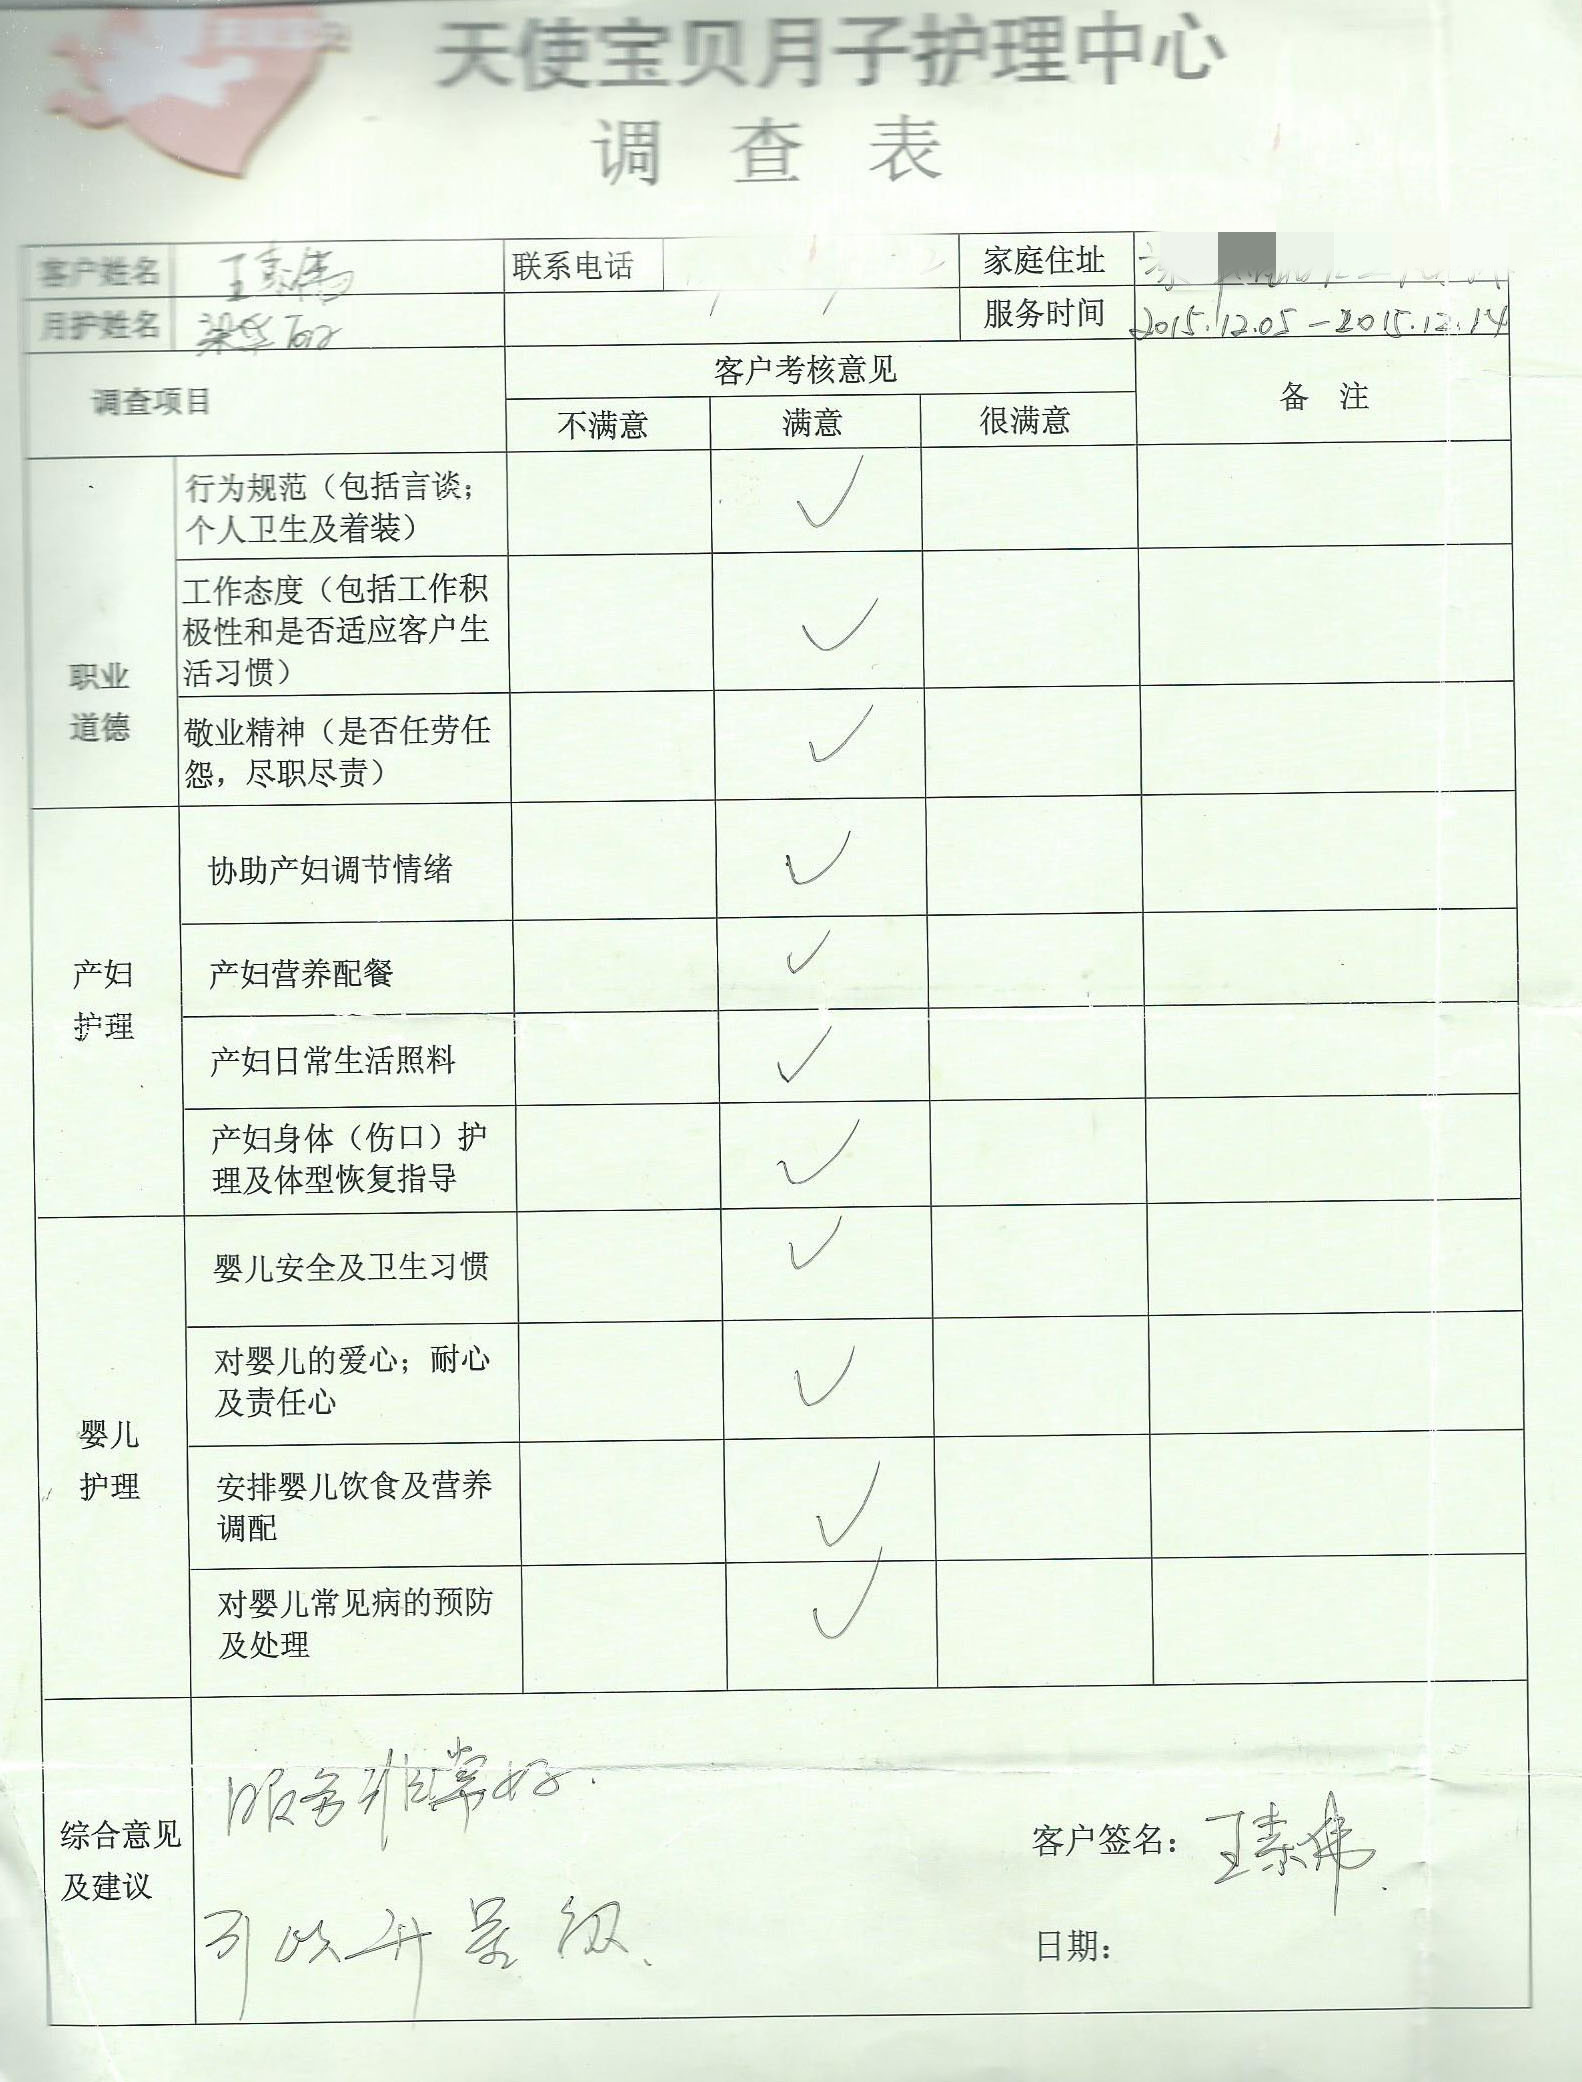 天使宝贝月子护理中心
调查表
客户姓名 王素伟 联系电话 家庭住址
月护姓名 服务时间 2015.12.05-2015.12.14
调查项目 客户考核意见 备 注
不满意 满意 很满意
职业
道德
行为规范（包括言谈；
个人卫生及着装） ✓
工作态度（包括工作积
极性和是否适应客户生
活习惯） ✓
敬业精神（是否任劳任
怨，尽职尽责） ✓
产妇
护理
协助产妇调节情绪 ✓
产妇营养配餐 ✓
产妇日常生活照料 ✓
产妇身体（伤口）护
理及体型恢复指导 ✓
婴儿
护理
婴儿安全及卫生习惯 ✓
对婴儿的爱心；耐心
及责任心 ✓
安排婴儿饮食及营养
调配 ✓
对婴儿常见病的预防
及处理 ✓
综合意见
及建议
服务非常好.
可以升星级、
客户签名：王素伟
日期：